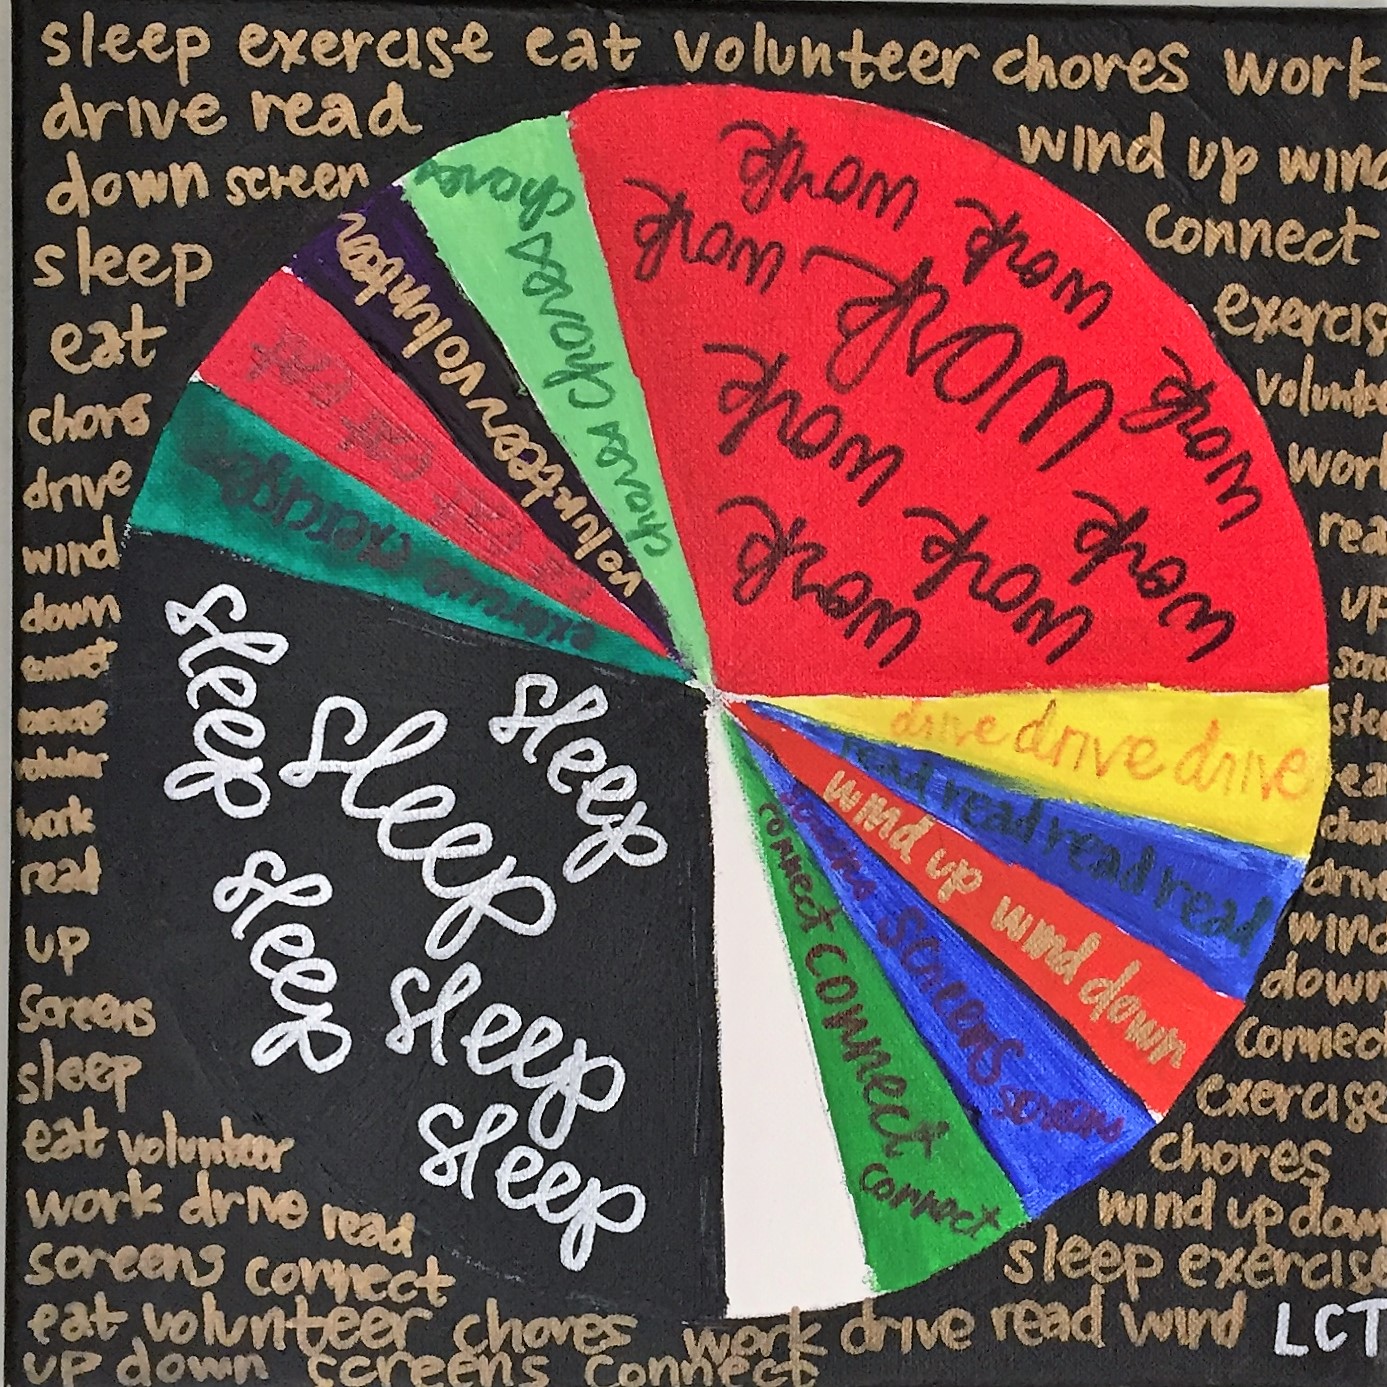 sleep exercise eat volunteer chores work
drive read
wind up wind
down screen
connect
sleep
exercis
eat
voluntee
chores
work
drive
rea
wind
up
down
scre
slee
work
ea
read
chor
up
drive
screens
wind
sleep
down
connec
exercise
eat volunteer
chores
work drive read
wind up down
screens connect
sleep exercise
eat volunteer chores work drive read wind LCT
up down screens connect
chores chores chores chores
work work
work work work
work work work
work work work
volunteer volunteer volunteer
eat eat eat
exercise exercise exercise
sleep
sleep
sleep
sleep
sleep
sleep
drive drive drive
read read read read
wind up wind down
screens screens screens
connect connect connect